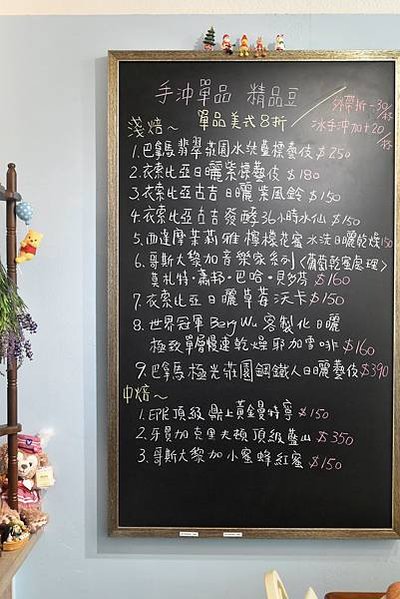 手沖單品 精品豆
外帶折-30/杯
冰手沖加+20/杯
淺焙~ 單品美式8折
1.巴拿馬翡翠莊園水洗藝伎 $250
2.衣索比亞日曬紫標藝伎 $180
3.衣索比亞古吉日曬紫風鈴 $150
4.衣索比亞古吉發酵36小時水仙 $150
5.西達摩茉莉雅檸檬花蜜水洗日曬乾燥150
6.哥斯大黎加音樂家系列〈葡萄乾蜜處理〉
莫札特·蕭邦·巴哈·貝多芬 $160
7.衣索比亞日曬草莓沃卡 $150
8.世界冠軍Berg Wu客製化日曬
極致單層慢速乾燥耶加雪啡 $160
9.巴拿馬極光莊園鋼鐵人日曬藝伎$390
中焙~
1.頂級鼎上黃金曼特寧 $150
2.牙買加克里夫頓頂級藍山 $350
3.哥斯大黎加小蜜蜂紅蜜 $150